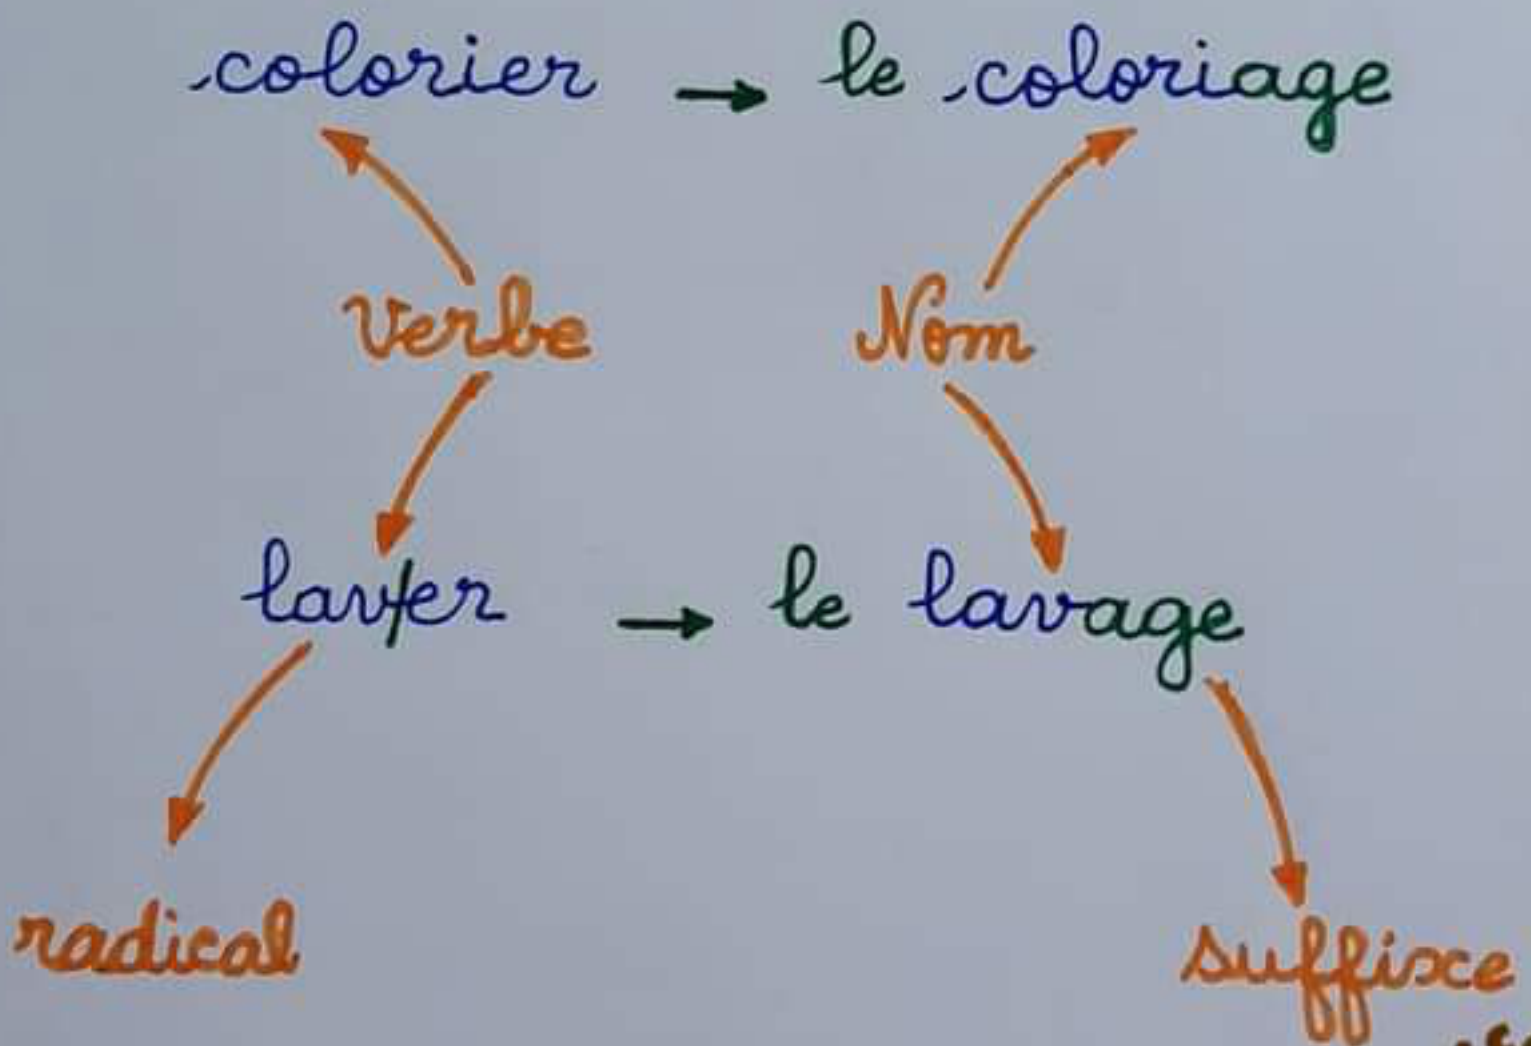 colorier → le coloriage
Verbe Nom
lav/er → le lavage
radical
suffixe